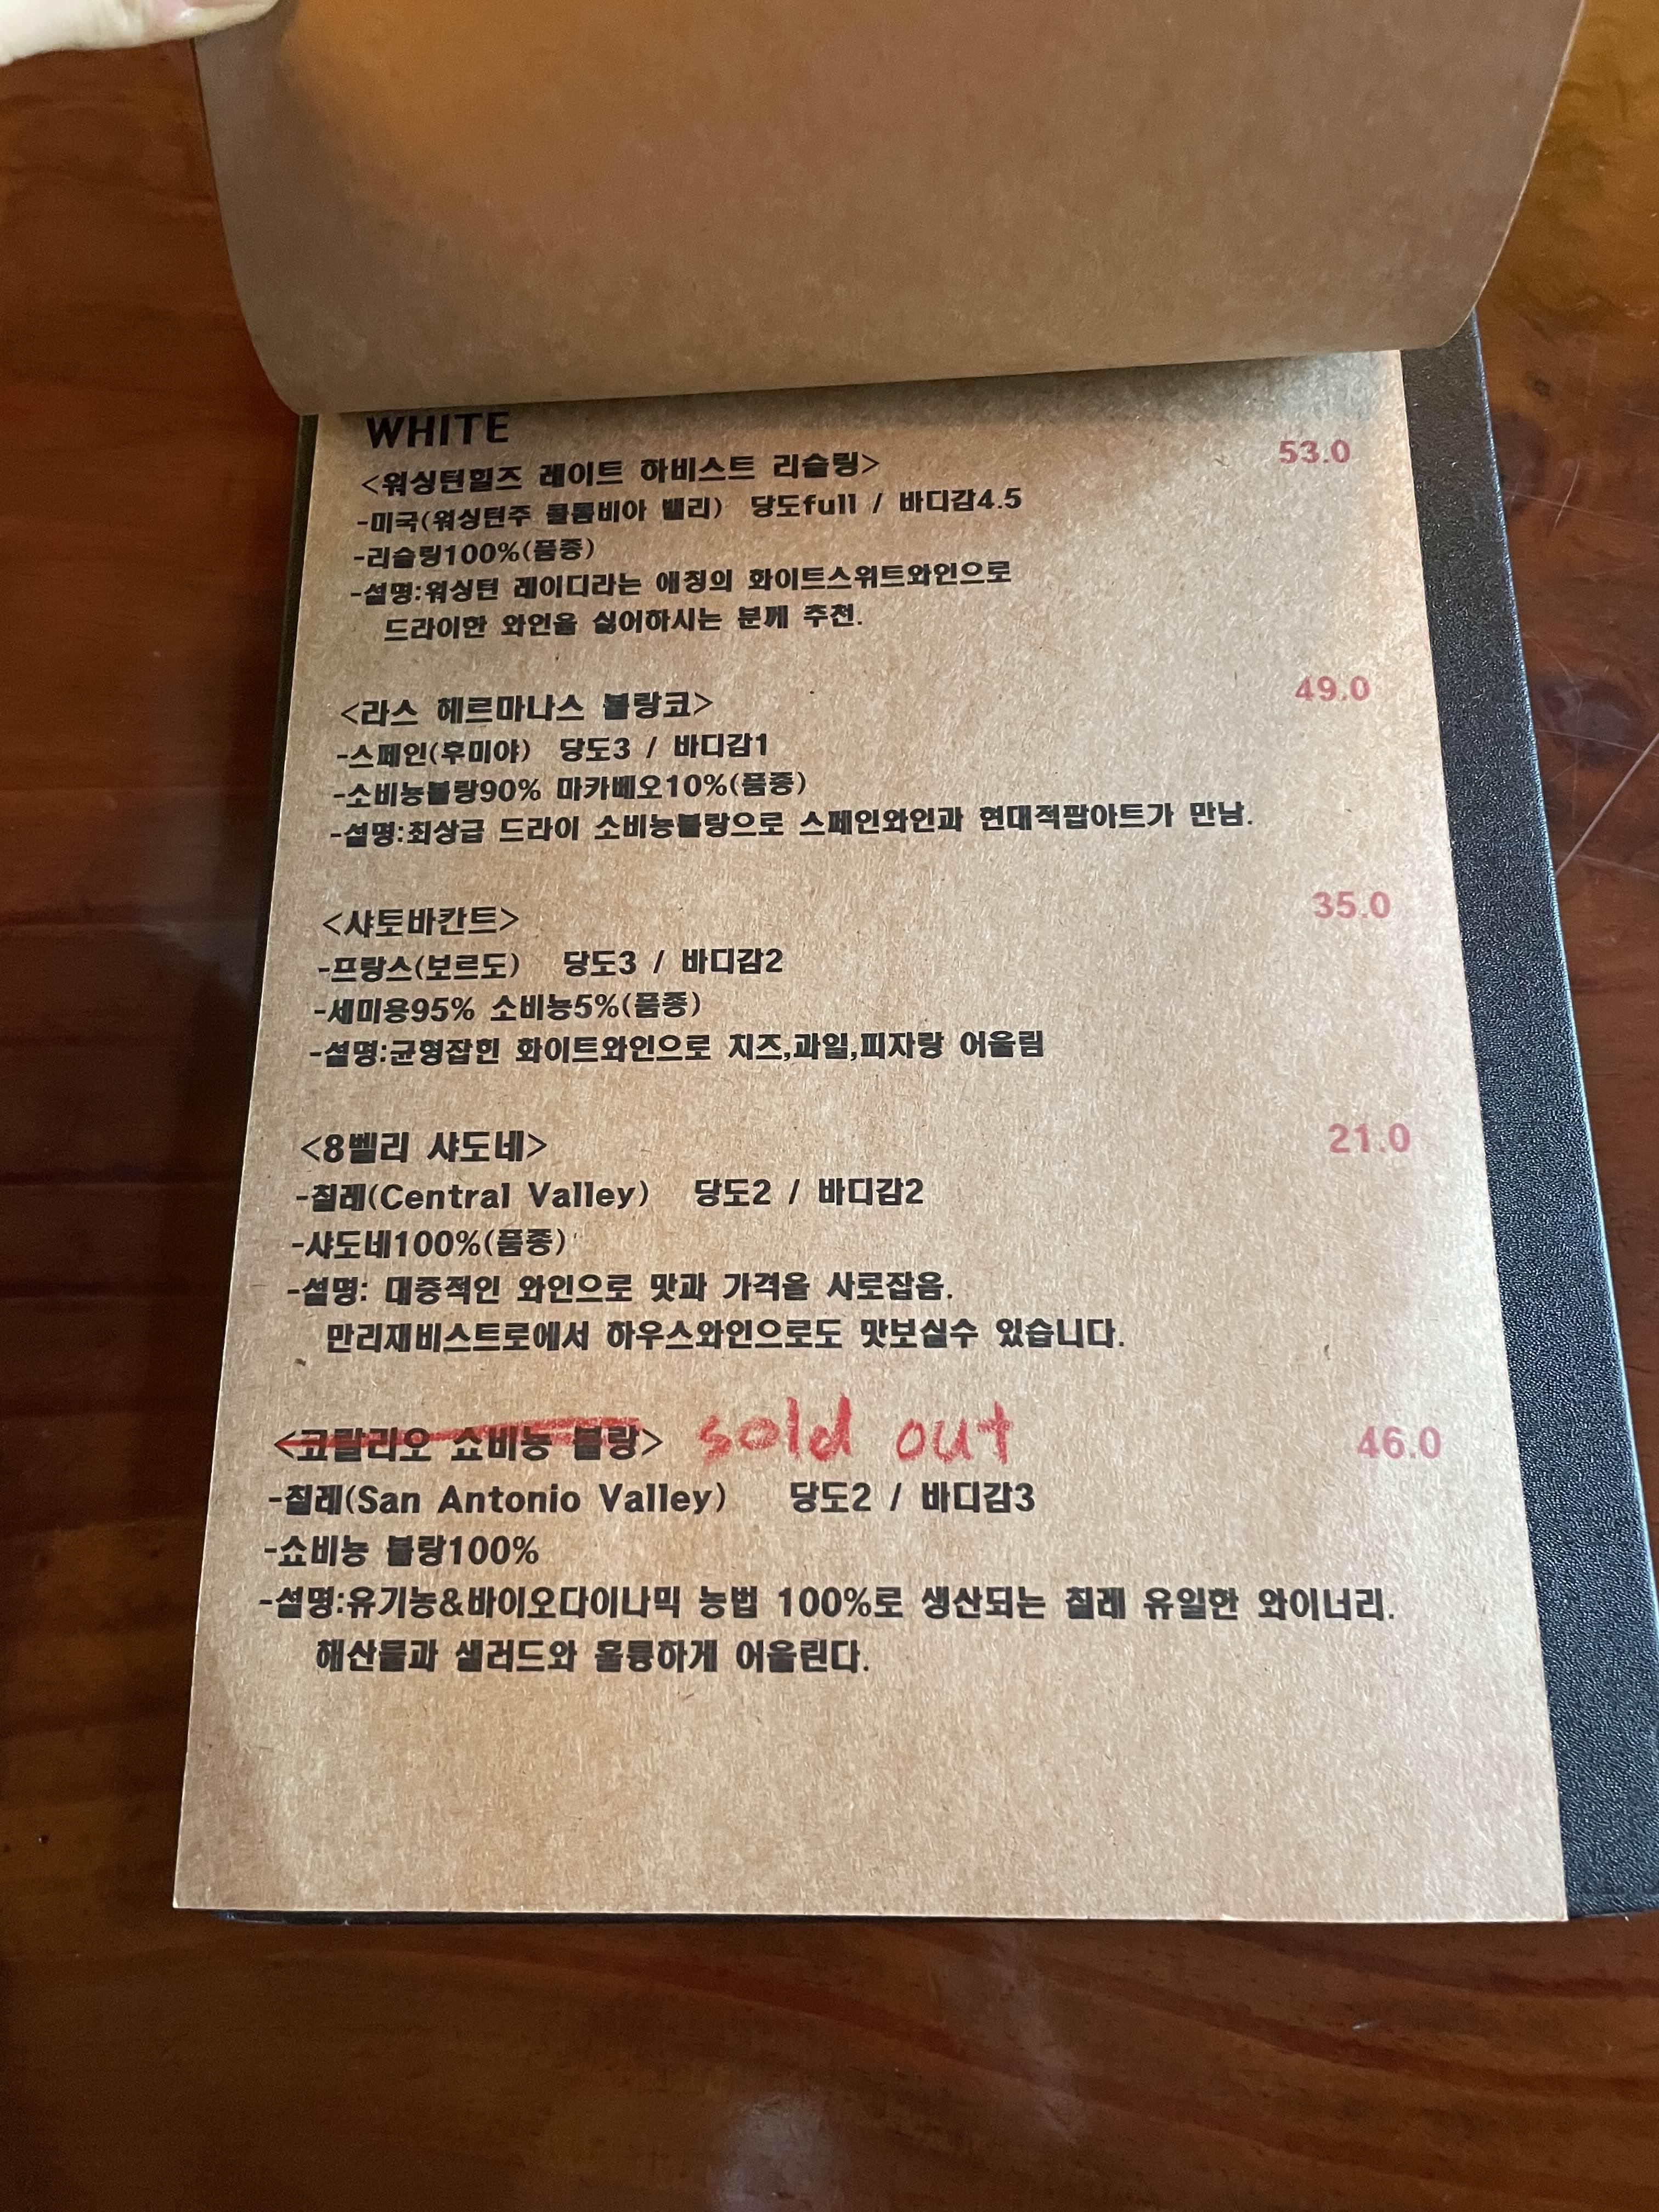 WHITE
<워싱턴힐즈 레이트 하비스트 리슬링> 53.0
-미국(워싱턴주 콜롬비아 밸리) 당도full / 바디감4.5
-리슬링100%(품종)
-설명:워싱턴 레이디라는 애칭의 화이트스위트와인으로
드라이한 와인을 싫어하시는 분께 추천.
<라스 헤르마나스 블랑코> 49.0
-스페인(후미야) 당도3 / 바디감1
-소비뇽블랑90% 마카베오10%(품종)
-설명:최상급 드라이 소비뇽블랑으로 스페인와인과 현대적팝아트가 만남.
<샤토바칸트> 35.0
-프랑스(보르도) 당도3 / 바디감2
-세미용95% 소비뇽5%(품종)
-설명:균형잡힌 화이트와인으로 치즈,과일,피자랑 어울림
<8벨리 샤도네> 21.0
-칠레(Central Valley) 당도2 / 바디감2
-샤도네100%(품종)
-설명: 대중적인 와인으로 맛과 가격을 사로잡음.
만리재비스트로에서 하우스와인으로도 맛보실수 있습니다.
<코랄리오 쇼비뇽 블랑> sold out 46.0
-칠레(San Antonio Valley) 당도2 / 바디감3
-쇼비뇽 블랑100%
-설명:유기농&바이오다이나믹 농법 100%로 생산되는 칠레 유일한 와이너리.
해산물과 샐러드와 훌륭하게 어울린다.